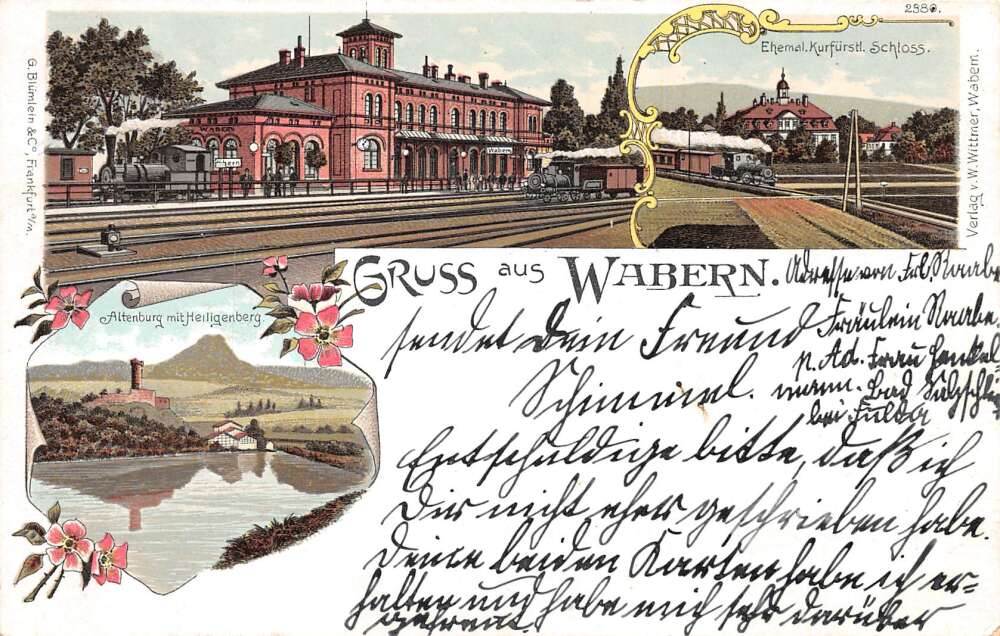 2380.
Ehemal. Kurfürstl. Schloss.
G. Blümlein & Co, Frankfurt a/M.
Verlag v. W. Wittmer, Wabern.
WABERN
Wabern
Altenburg mit Heiligenberg.
GRUSS AUS WABERN.
Adresse von Frl. Raabe
Fräulein Raabe,
p. Ad. Frau Henkel-
mann. Bad Salzschlirf
bei Fulda
sendet Dein Freund
Schimmel.
Entschuldige bitte, daß ich
Dir nicht eher geschrieben habe.
Deine beiden Karten habe ich er-
halten und habe mich sehr darüber
gefreut.